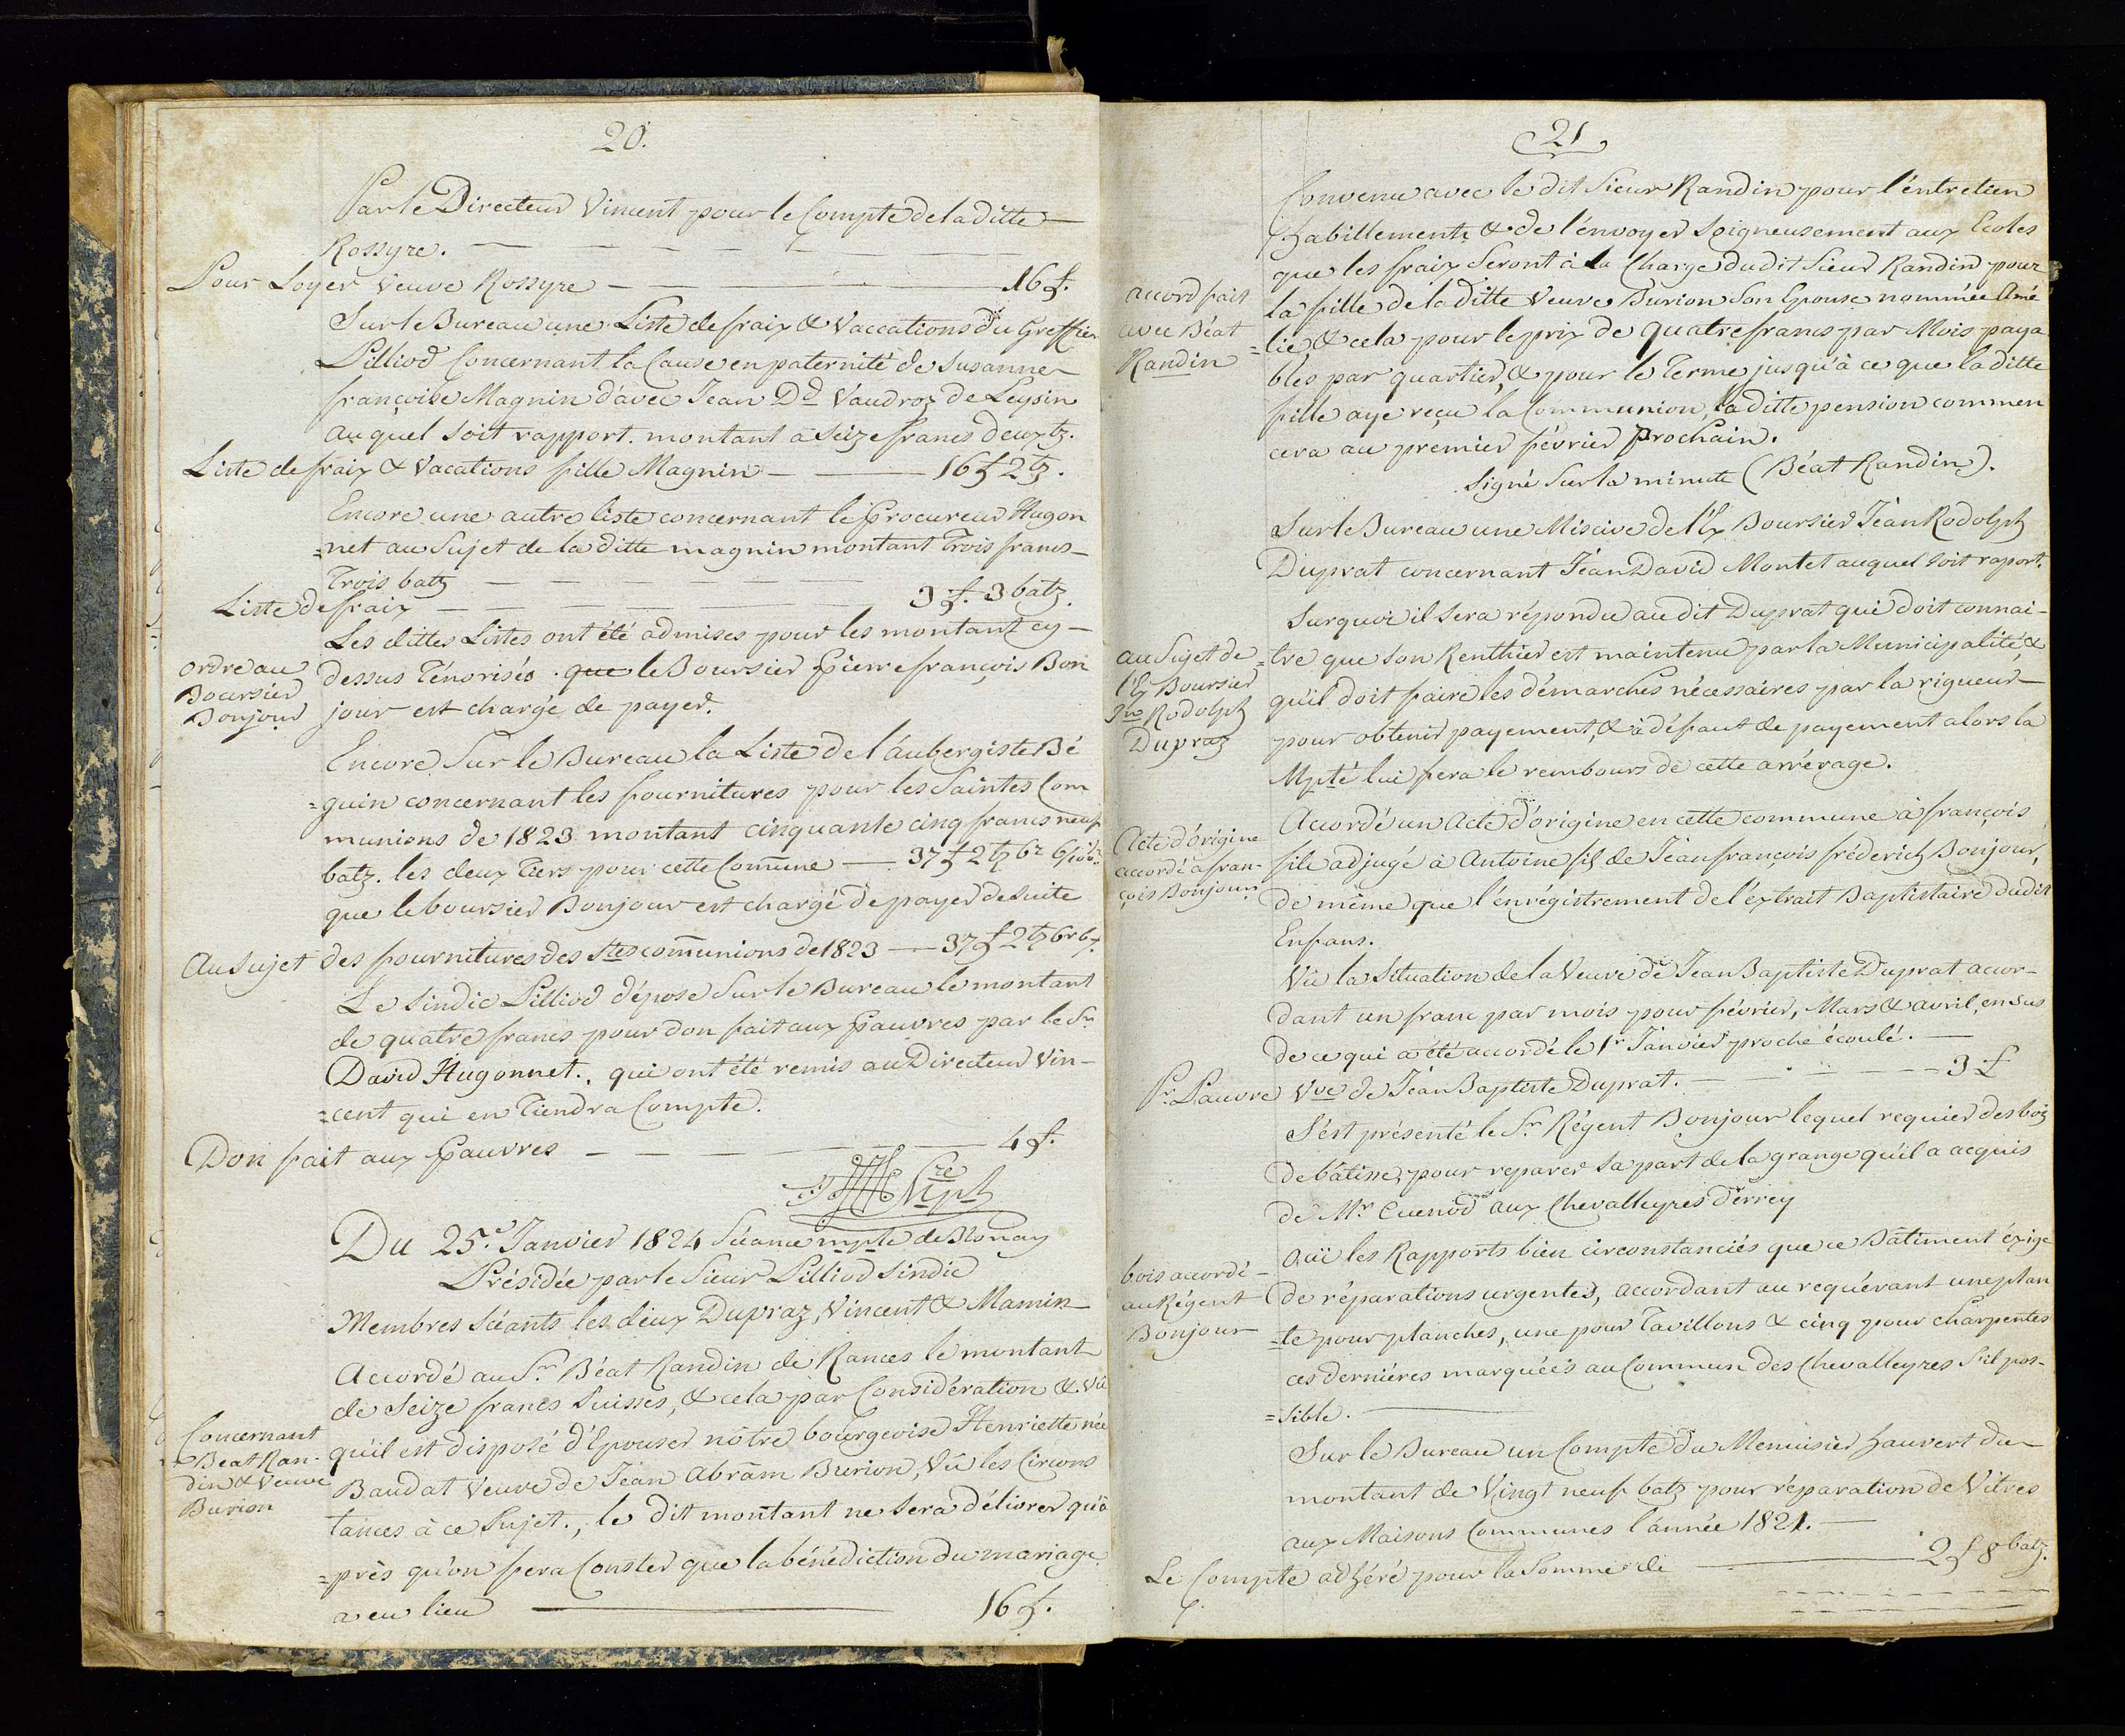 20.
Par le Directeur Vincent pour le Compte de la ditte
Rossyre.
Pour Loyer Veuve Rossyre 16 f.
Sur le Bureau une Liste de fraix & Vaccations du Greffier
Pilliod Concernant la Cause en paternité de Susanne
françoise Magnin d'avec Jean Dd Vaudroz de Leysin
auquel soit rapport. montant à seize francs deux bz.
Liste de fraix & Vacations fille Magnin 16 f 2 bz.
Encore une autre liste concernant le Procureur Hugon
=net au Sujet de la ditte magnin montant Trois francs
Trois batz
Liste de fraix 3 f. 3 batz.
Les dittes Listes ont été admises pour les montant cy
ordre au
Boursier
Bonjour
dessus Ténorisés. que le Boursier Pierre françois Bon
jour est chargé de payer.
Encore Sur le Bureau la Liste de l'áubergiste Bé
=guin concernant les fournitures pour les Saintes Com
munions de 1823 montant cinquante cinq francs neuf
batz. les deux Tiers pour cette Com̄une 37 f 2 bz 6r
que le boursier Bonjour est chargé de payer de Suite
Au Sujet des fournitures des Stes com̄unions de 1823 37 f 2 bz 6r
Le Sindic Pilliod dépose Sur le Bureau le montant
de quatre francs pour don fait aux Pauvres par le Sr
David Hugonnet., qui ont été remis au Directeur Vin-
=cent qui en Tiendra Compte.
Don fait aux Pauvres 4 f.
Du 25e Janvier 1824 Séance mpte de Blonay
Présidée par le Sieur Pilliod Sindic
Membres Séants les deux Dupraz, Vincent & Mamin
Accordé au Sr. Béat Randin de Rances le montant
de Seize francs Suisses, & cela par Considération & vû
Concernant
Beat Ran-
din & Veuve
Burion
qu'il est disposé d'Epouser nôtre bourgeoise Henriette née
Baudat Veuve de Jean Abrām Burion, Vû les Circons
tances à ce Sujet., le dit montant ne Sera délivrer qu'a
=près qu'on fera Conster que la bénédiction du mariage
a eu lieu 16 f.
21
Convenu avec le dit Sieur Randin pour l'éntretien
habillements & de l'énvoyer Soigneusement aux Ecoles
que les fraix Seront à la Charge du dit Sieur Randin pour
accord fait
avec Béat
Randin
la fille de la ditte Veuve Burion Son Epouse nommée Amé
=lie, & cela pour le prix de quatre francs par Mois paya
bles par quartier, & pour le Terme jusqu'à ce que la ditte
fille aye reçu la Communion, la ditte pension commen
cera au premier février prochain.
signé Sur la minute (Béat Randin).
Sur le Bureau une Miscive de l'Ex Boursier Jean Rodolph
Duprat concernant Jean David Montet auquel soit raport.
Surquoi il Sera répondu au dit Duprat qui doit connai-
au Sujet de
l'Ex Boursier
Jn Rodolph
Dupraz
=tre que son Renthier est maintenu par la Municipalité, &
qu'il doit faire les démarches nécessaires par la rigueur
pour obtenir payement, & à défaut de payement alors la
Mpté lui fera le rembours de cette arrérage.
Acte d'órigine
accordé à fran-
çois Bonjour
Accordé un Acte d'órigine en cette commune à françois
fils adjugé à Antoine fils de Jean françois fréderich Bonjour,
de même que l'énrégistrement de l'éxtrait Baptistaire dudit
Enfans.
Vû la Situation de la Veuve de Jean Baptiste Duprat accor-
dant un franc par mois pour février, Mars & avril, en sus
de ce qui a été accordé le 1r Janvier proche écoulé.
Pr. Pauvre Vve de Jean Baptiste Duprat. 3 f
S'ést présenté le Sr Régent Bonjour lequel requier des bois
de bâtisse, pour réparer sa part de la grange qu'il a acquis
de Mr Cuenod aux Chevalleyres Derrey
bois accordé
au Régent
Bonjour
Oüi les Rapports bien circonstanciés que ce Bâtiment éxige
de réparations urgentes, accordant au requérant une plan
=te pour planches, une pour Tavillons & cinq pour charpentes
ces dernières marquées au Commun des Chevalleyres S'il pos-
=sible.
Sur le Bureau un Compte du Menuisier hauvert du
montant de Vingt neuf batz pour réparation de Vitres
aux Maisons Communes l'ánnée 1821.
Le Compte adhéré pour la Somme de 2 f 8 batz.